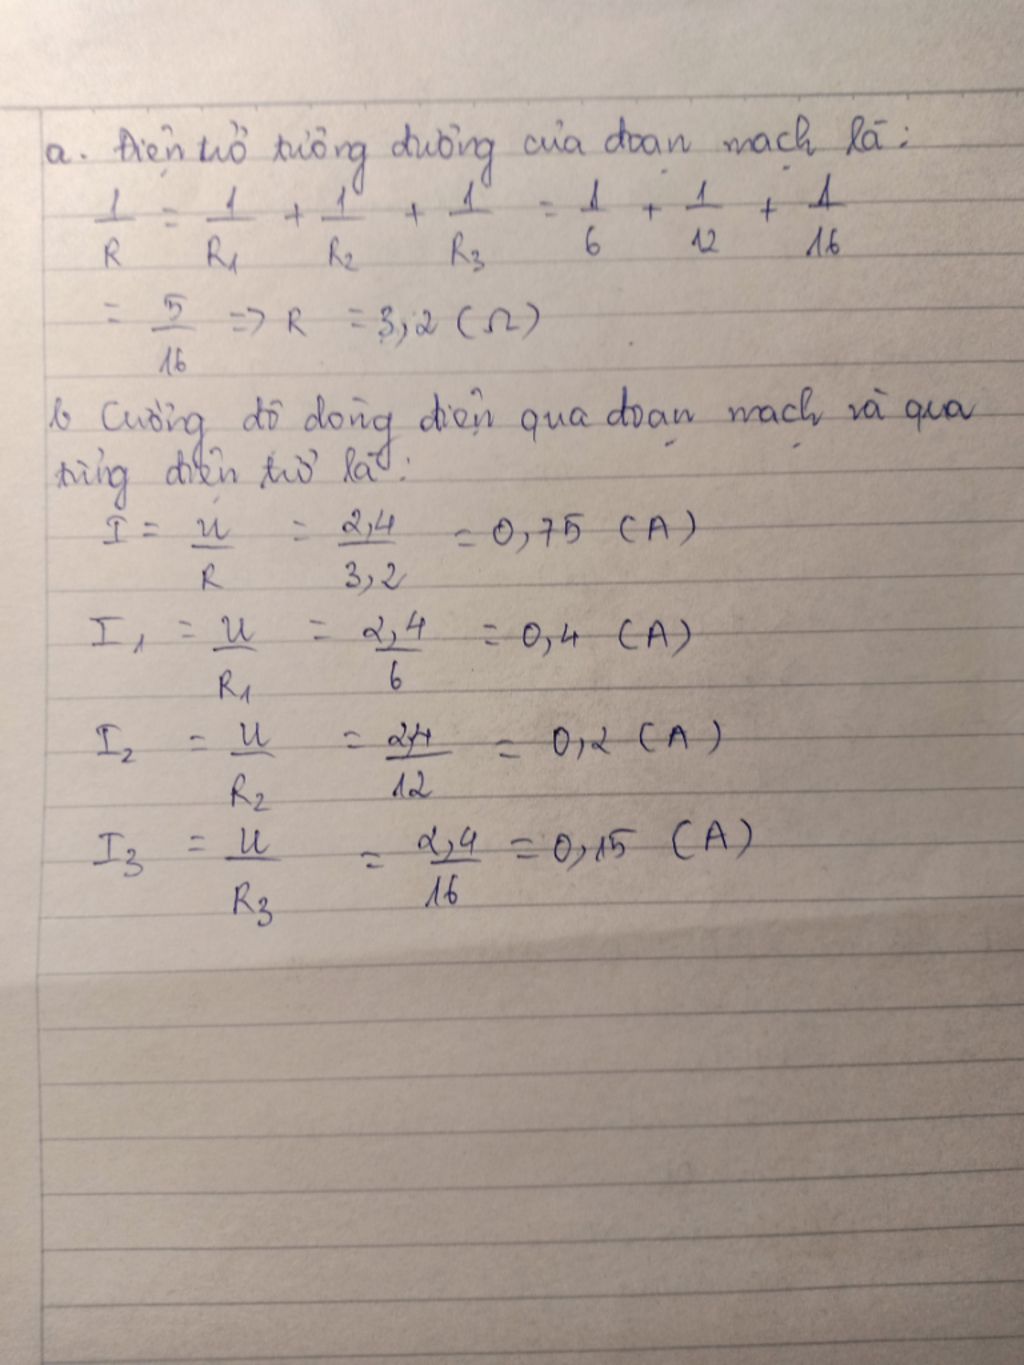 a. Điện trở tương đương của đoạn mạch là:
1/R = 1/R₁ + 1/R₂ + 1/R₃ = 1/6 + 1/12 + 1/16
= 5/16 => R = 3,2 (Ω)
b Cường độ dòng điện qua đoạn mạch và qua
từng điện trở là:
I = U/R = 2,4/3,2 = 0,75 (A)
I₁ = U/R₁ = 2,4/6 = 0,4 (A)
I₂ = U/R₂ = 2,4/12 = 0,2 (A)
I₃ = U/R₃ = 2,4/16 = 0,15 (A)